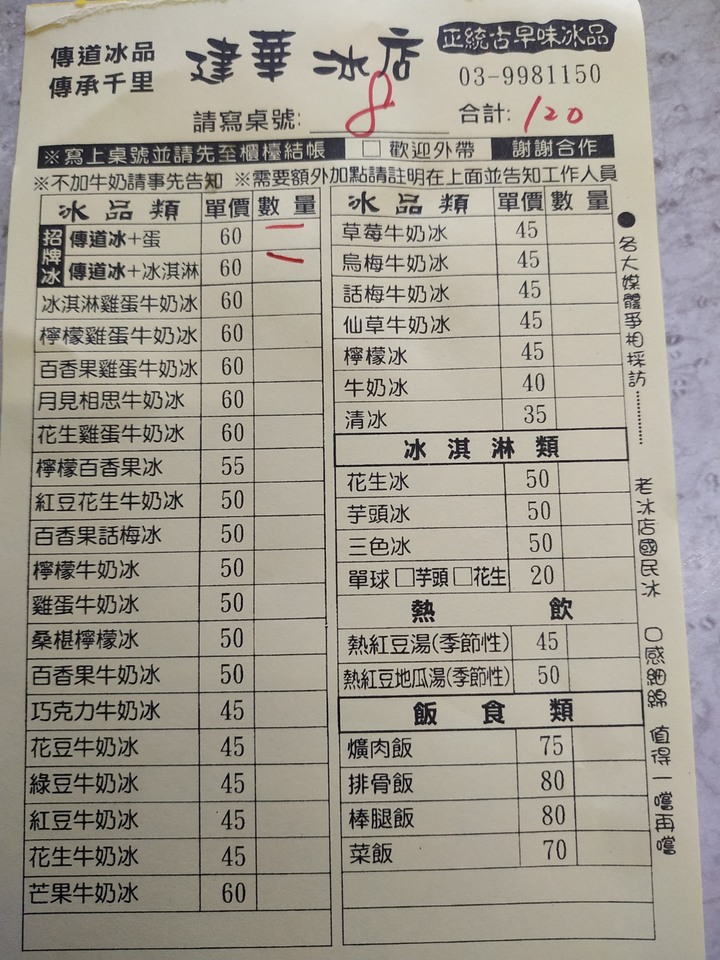 傳道冰品
傳承千里
建華冰店
正統古早味冰品
03-9981150
請寫桌號: 8
合計: 120
※寫上桌號並請先至櫃檯結帳 □ 歡迎外帶 謝謝合作
※不加牛奶請事先告知 ※需要額外加點請註明在上面並告知工作人員
冰品類 單價 數量
招牌冰
傳道冰+蛋 60 一
傳道冰+冰淇淋 60 一
冰淇淋雞蛋牛奶冰 60
檸檬雞蛋牛奶冰 60
百香果雞蛋牛奶冰 60
月見相思牛奶冰 60
花生雞蛋牛奶冰 60
檸檬百香果冰 55
紅豆花生牛奶冰 50
百香果話梅冰 50
檸檬牛奶冰 50
雞蛋牛奶冰 50
桑椹檸檬冰 50
百香果牛奶冰 50
巧克力牛奶冰 45
花豆牛奶冰 45
綠豆牛奶冰 45
紅豆牛奶冰 45
花生牛奶冰 45
芒果牛奶冰 60
冰品類 單價 數量
草莓牛奶冰 45
烏梅牛奶冰 45
話梅牛奶冰 45
仙草牛奶冰 45
檸檬冰 45
牛奶冰 40
清冰 35
冰淇淋類
花生冰 50
芋頭冰 50
三色冰 50
單球 □芋頭 □花生 20
熱飲
熱紅豆湯(季節性) 45
熱紅豆地瓜湯(季節性) 50
飯食類
爌肉飯 75
排骨飯 80
棒腿飯 80
菜飯 70
●各大媒體爭相採訪………
老冰店國民冰 口感細綿 值得一嚐再嚐